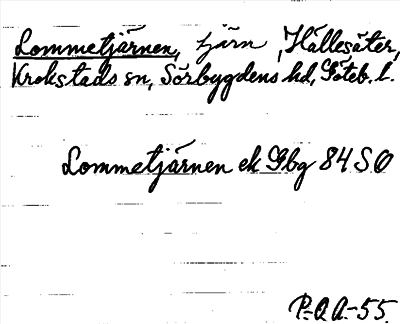 Lommetjärnen, tjärn, Hällesäter,
Krokstads sn, Sörbygdens hd, Göteb. l.
Lommetjärnen ek Gbg 84 SO
P.-O A.-55.